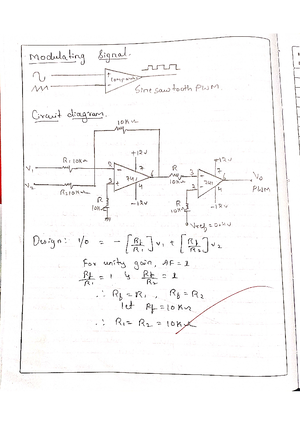 Modulating Signal.
+
Comparator
-
Sine sawtooth PWM
Circuit diagram.
10KΩ
+12V
+12V
V1
R1 10KΩ
2
7
6
R
10KΩ
3
7
V0
PWM
V2
R2 10KΩ
3
741
4
2
741
4
R
10K
-12V
R
10K
-12V
Design: V0 = - [Rf/R1] V1 + [Rf/R2] V2
For unity gain, AF = 1
Rf/R1 = 1 & Rf/R2 = 1
∴ Rf = R1 , Rf = R2
let Rf = 10KΩ
∴ R1 = R2 = 10KΩ